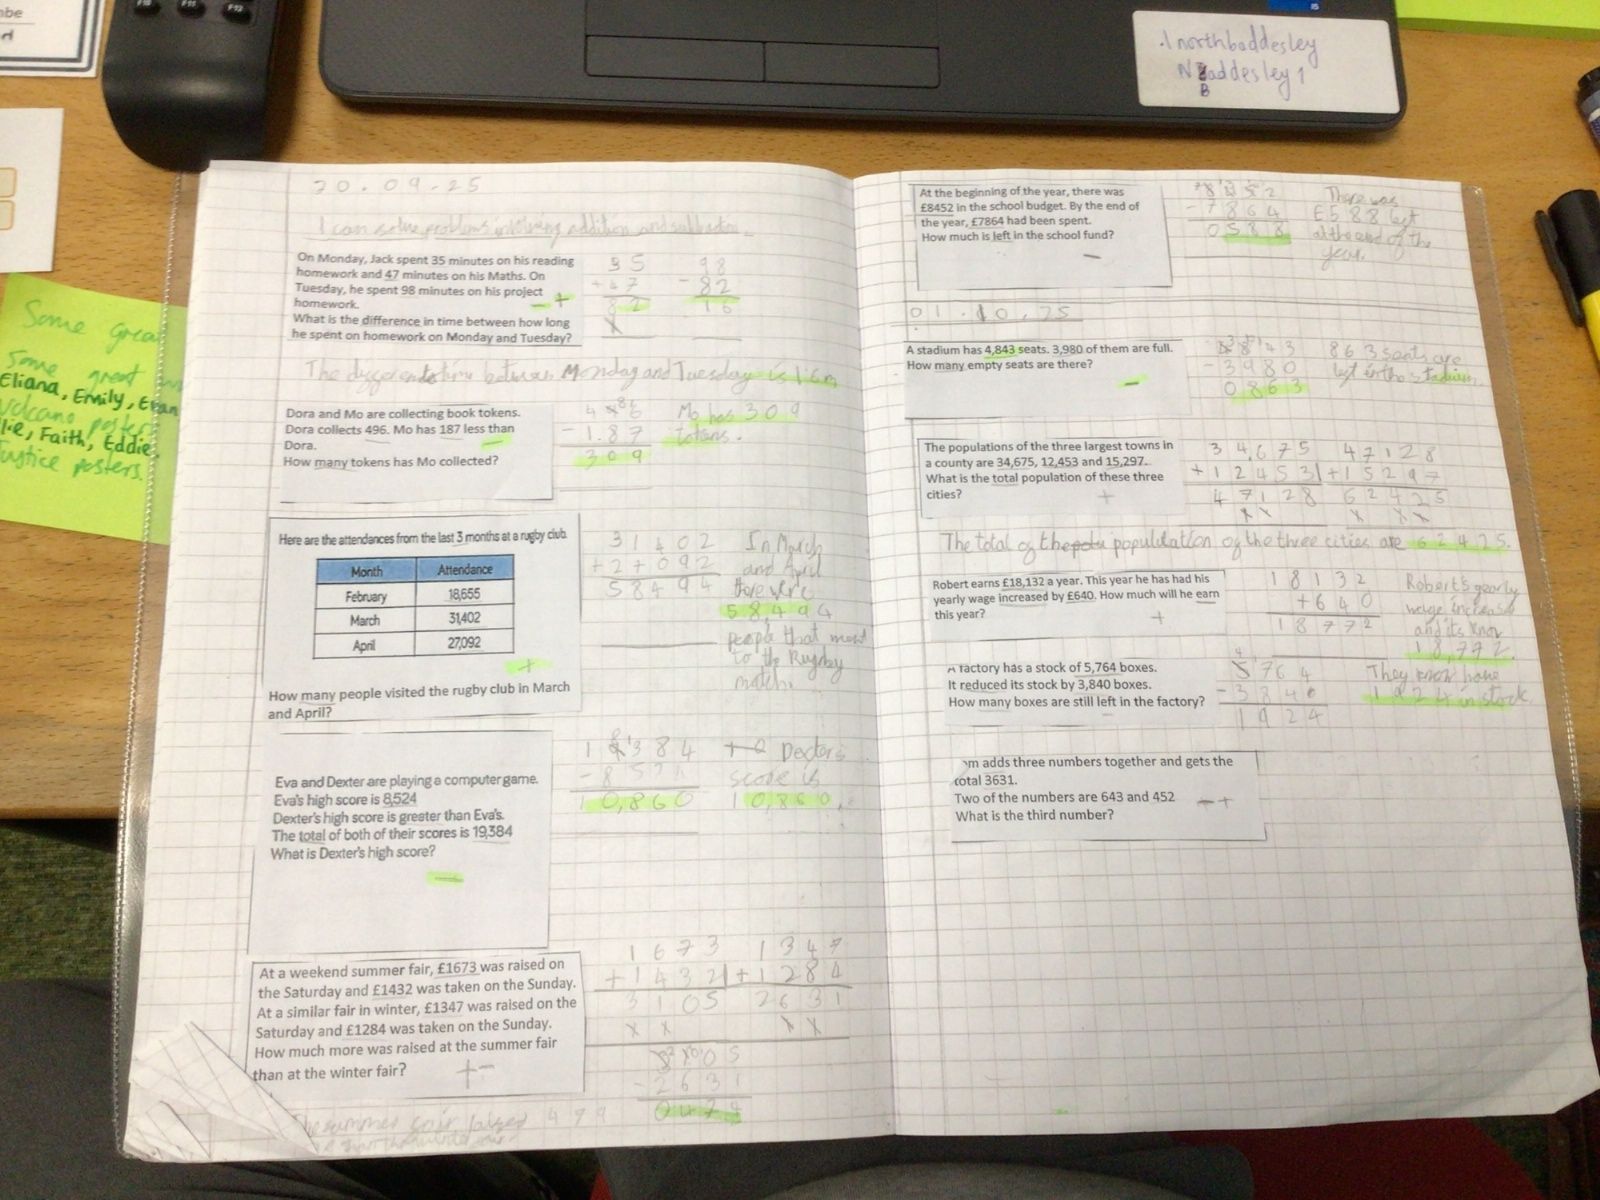 F10 F11 F12
15
.1northbaddesley
NBaddesley1
B
Some grea
Some great
Eliana, Emily, Evan
Volcano posters
lie, Faith, Eddie,
Justice posters.
30.09.25
I can solve problems involving addition and subtraction.
On Monday, Jack spent 35 minutes on his reading
homework and 47 minutes on his Maths. On
Tuesday, he spent 98 minutes on his project
homework.
What is the difference in time between how long
he spent on homework on Monday and Tuesday?
- +
35 98
+47 -82
82 16
time between Monday and Tuesday is 16m
Dora and Mo are collecting book tokens.
Dora collects 496. Mo has 187 less than
Dora.
How many tokens has Mo collected?
-
- 187
309
Mo has 309
Here are the attendances from the last 3 months at a rugby club.
Month Attendance
February 18,655
March 31,402
April 27,092
+
How many people visited the rugby club in March
and April?
31402
+27092
58494
In March
and April
there were
58,494
people that went
to the Rugby
match.
Eva and Dexter are playing a computer game.
Eva's high score is 8,524
Dexter's high score is greater than Eva's.
The total of both of their scores is 19,384
What is Dexter's high score?
-
10,860
Dexters
score is
10,860.
At a weekend summer fair, £1673 was raised on
the Saturday and £1432 was taken on the Sunday.
At a similar fair in winter, £1347 was raised on the
Saturday and £1284 was taken on the Sunday.
How much more was raised at the summer fair
than at the winter fair?
+ -
1673 1347
+1432 +1284
3105 2631
-2631
The summer fair raised 479
At the beginning of the year, there was
£8452 in the school budget. By the end of
the year, £7864 had been spent.
How much is left in the school fund?
-
8452
-7864
0588
There was
£588 left
at the end of the
year.
01.10.25
A stadium has 4,843 seats. 3,980 of them are full.
How many empty seats are there?
-
-3980
0863
863 seats are
left in the stadium
The populations of the three largest towns in
a county are 34,675, 12,453 and 15,297.
What is the total population of these three
cities?
+
34,675 47128
+12453 +15297
47128 62425
The total of the populdation of the three cities are 62425.
Robert earns £18,132 a year. This year he has had his
yearly wage increased by £640. How much will he earn
this year?
+
18132
+640
18772
Robert's yearly
wage increase
and its know
18,772.
A factory has a stock of 5,764 boxes.
It reduced its stock by 3,840 boxes.
How many boxes are still left in the factory?
-
5764
-3840
1924
They know have
1924 in stock.
om adds three numbers together and gets the
total 3631.
Two of the numbers are 643 and 452
What is the third number?
- +